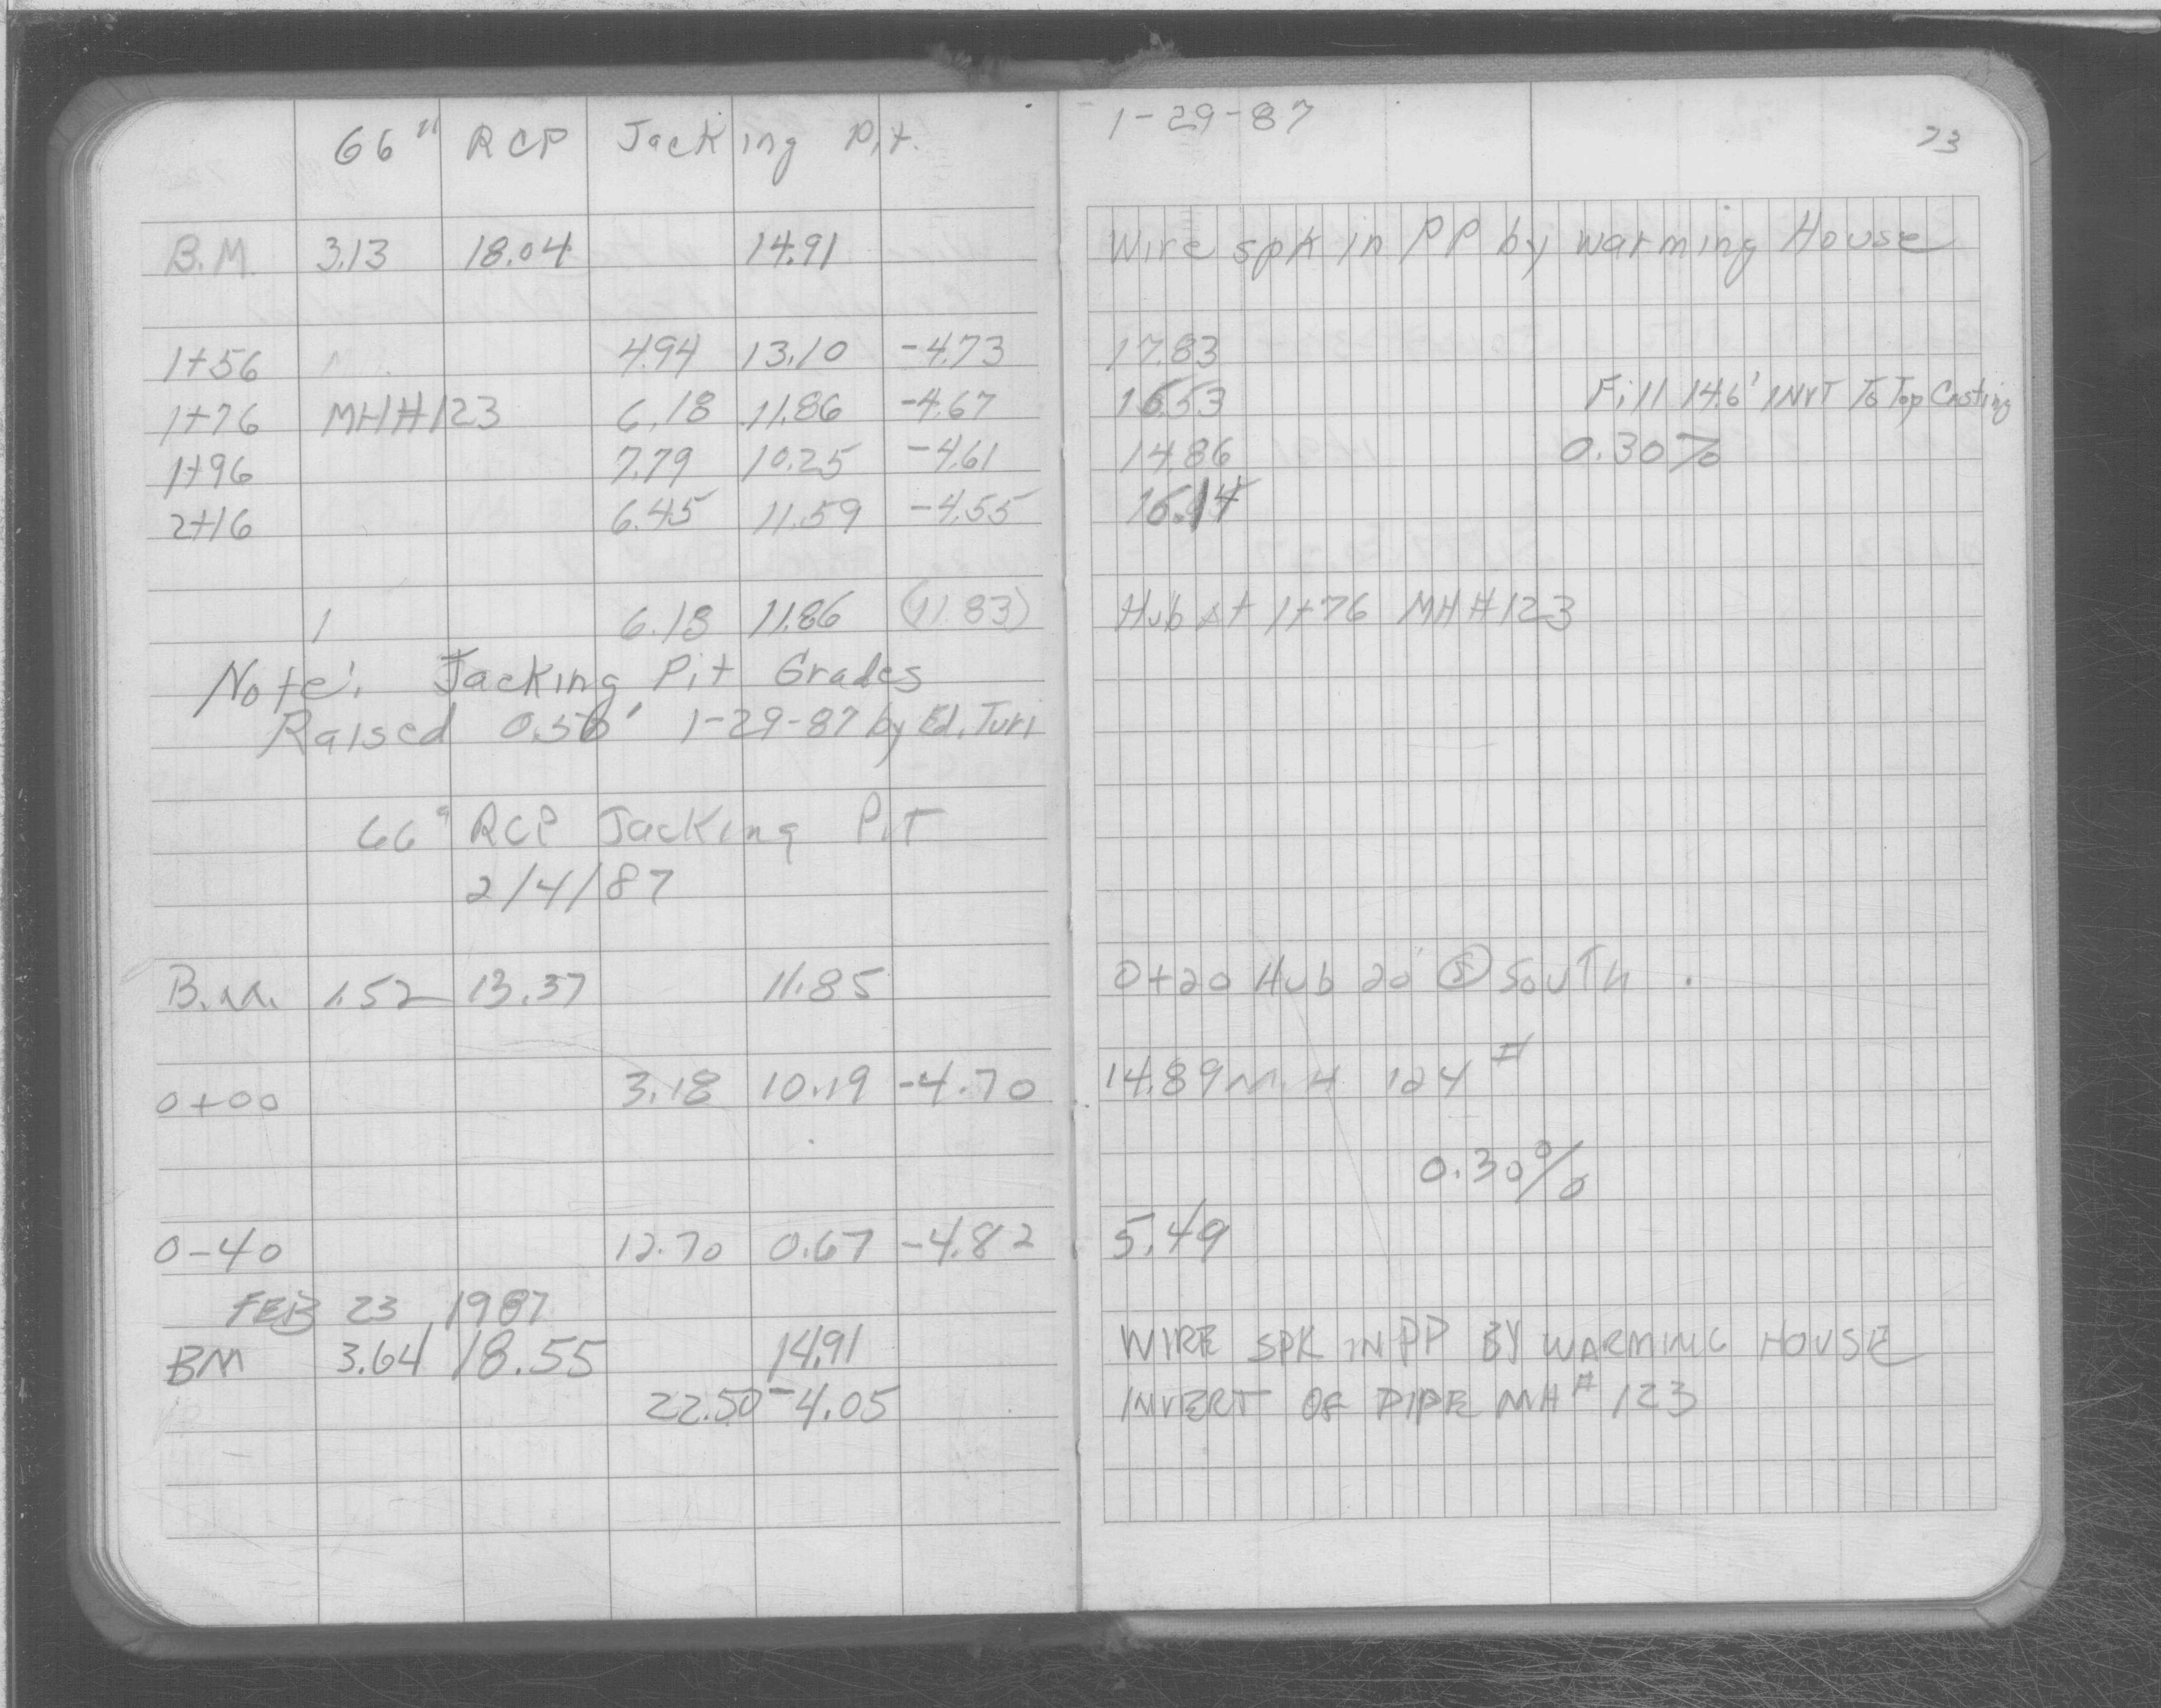 66" RCP Jacking Pit.
B.M. 3.13 18.04 14.91
1+56 4.94 13.10 -4.73
1+76 MH#123 6.18 11.86 -4.67
1+96 7.79 10.25 -4.61
2+16 6.45 11.59 -4.55
6.18 11.86 (11.83)
Note: Jacking Pit Grades
Raised 0.50' 1-29-87 by Ed. Turi
66" RCP Jacking Pit
2/4/87
B.M. 1.52 13.37 11.85
0+00 3.18 10.19 -4.70
0-40 12.70 0.67 -4.82
FEB 23, 1987
BM 3.64 18.55 14.91
22.50 -4.05
1-29-87
73
Wire spk in PP by warming House
17.83
16.53 Fill 14.6' INVT To Top Casting
14.86 0.30%
16.14
Hub at 1+76 MH#123
0+20 Hub 20' South.
14.89 M.H 124#
0.30%
5.49
WIRE SPK IN PP BY WARMING HOUSE
INVERT OF PIPE MH# 123